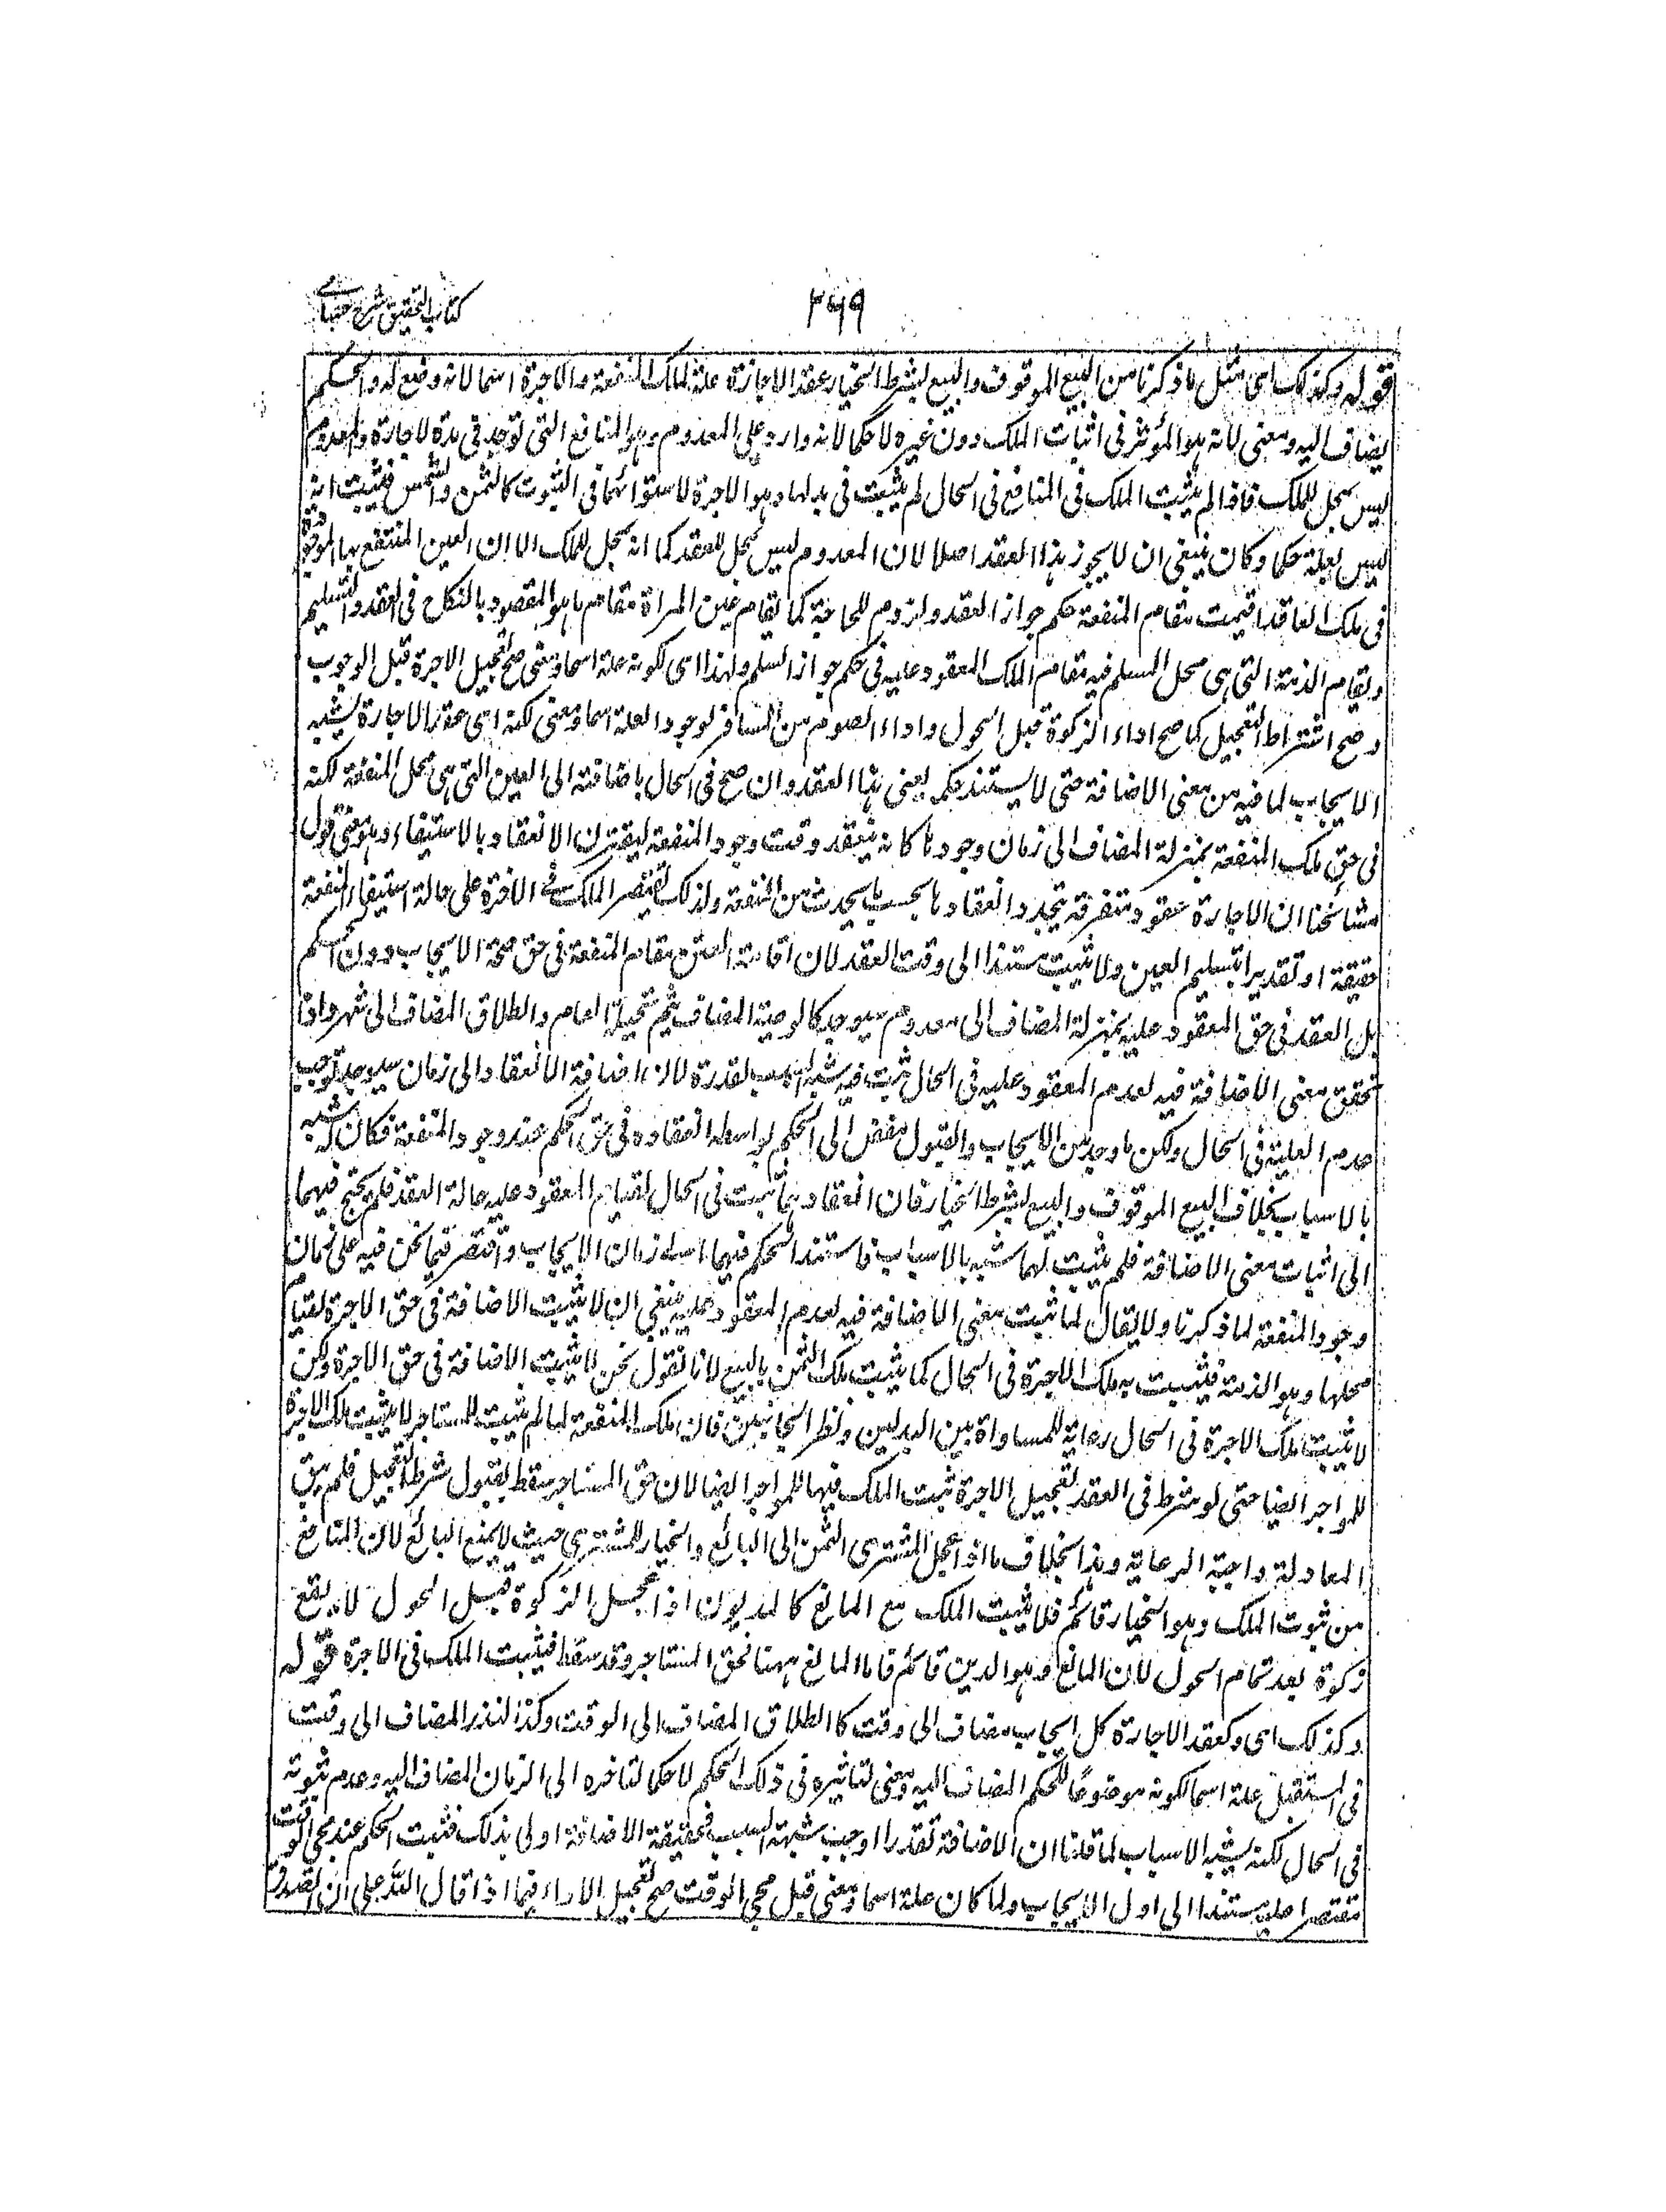 كتاب التحقيق شرح حسامي
٣٦٩
قوله وكذلك اى مثل ما ذكرنا من البيع الموقوف والبيع بشرط الخيار عقد الاجازة علة لملك المنفعة والاجرة اسما لانه وضع له والحكم
يضاف اليه ومعنى لانه هو المؤثر فى اثبات الملك دون غيره لا حكما لانه وارد على المعدوم وهو المنافع التى توجد فى مدة الاجارة والمعدوم
ليس بمحل للملك فاذا لم يثبت الملك فى المنافع فى الحال لم يثبت فى بدلها وهو الاجرة لاستوائهما فى الثبوت كالثمن والمثمن فثبت انه
ليس بعلة حكما وكان ينبغى ان لا يجوز هذا العقد اصلا لان المعدوم ليس بمحل للعقد كما انه ليس بمحل للملك الا ان العين المنتفع بها الموجودة
فى ملك العاقد اقيمت مقام المنفعة فى حكم جواز العقد ولزومه للحاجة كما تقام عين المراة مقام ما هو المقصود بالنكاح فى العقد والتسليم
وتقام الذمة التى هى محل المسلم فيه مقام الملك المعقود عليه فى حكم جواز السلم ولهذا اى لكونه علة اسما ومعنى صح تعجيل الاجرة قبل الوجوب
وصح اشتراط التعجيل كما صح اداء الزكوة قبل الحول واداء الصوم من المسافر لوجود العلة اسما ومعنى لكنه اى عقد الاجارة يشبه
الايجاب لما فيه من معنى الاضافة حتى لا يستند حكمه يعنى هذا العقد وان صح فى الحال باضافته الى العين التى هى محل المنفعة لكنه
فى حق ملك المنفعة بمنزلة المضاف الى زمان وجودها كانه ينعقد وقت وجود المنفعة ليقترن الانعقاد بالاستيفاء وهو معنى قول
مشائخنا ان الاجارة عقود متفرقة يتجدد انعقادها بحسب ما يحدث من المنفعة ولذلك يقتصر الملك فى الاجرة على حالة استيفاء المنفعة
حقيقة او تقديرا بتسليم العين ولا يثبت مستندا الى وقت العقد لان اقامة العين مقام المنفعة فى حق صحة الايجاب دون الحكم
بل العقد فى حق المعقود عليه بمنزلة المضاف الى معدوم سيوجد كالوصية المضاف الى العام والطلاق المضاف الى شهر واذا
تحقق معنى الاضافة فيه لعدم المعقود عليه فى الحال ثبت فيه شبه السبب بقدره لان اضافة الانعقاد الى زمان سيوجد توجب
عدم العلية فى الحال ولكن ما وجد من الايجاب والقبول مفض الى الحكم بواسطة انعقاده فى حق الحكم عند وجود المنفعة فكان له شبه
بالاسباب بخلاف البيع الموقوف والبيع بشرط الخيار فان انعقادهما ثبت فى الحال لقيام المعقود عليه حالة العقد فلم يحتج فيهما
الى اثبات معنى الاضافة فلم يثبت لهما شبه بالاسباب فاستند الحكم فيهما الى زمان الايجاب واقتصر فيما نحن فيه على زمان
وجود المنفعة لما ذكرنا ولا يقال لما ثبت معنى الاضافة فيه لعدم المعقود عليه ينبغى ان لا يثبت الاضافة فى حق الاجرة لقيام
محلها وهو الذمة فيثبت به ملك الاجرة فى الحال كما يثبت ملك الثمن بالبيع لانا نقول نحن لا نثبت الاضافة فى حق الاجرة ولكن
لا يثبت ملك الاجرة فى الحال رعاية للمساواة بين البدلين ونظرا للجانبين فان ملك المنفعة لما لم يثبت للمستاجر لا يثبت ملك الاجرة
للمواجر ايضا حتى لو شرط فى العقد تعجيل الاجرة ثبت الملك فيها للمواجر ايضا لان حق المستاجر سقط بقبول شرط التعجيل فلم يبق
المعادلة واجبة الرعاية وهذا بخلاف ما اذا عجل المشترى الثمن الى البائع والخيار للمشترى حيث لا يمنع البائع لان المانع
من ثبوت الملك وهو الخيار قائم فلا يثبت الملك مع المانع كالمديون اذا عجل الزكوة قبل الحول لا يقع
زكوة بعد تمام الحول لان المانع وهو الدين قائم فاما المانع ههنا فحق المستاجر وقد سقط فيثبت الملك فى الاجرة قوله
وكذلك اى وكعقد الاجارة كل ايجاب مضاف الى وقت كالطلاق المضاف الى الوقت وكذا النذر المضاف الى وقت
فى المستقبل علة اسما لكونه موضوعا للحكم المضاف اليه ومعنى لتاثيره فى ذلك الحكم لا حكما لتاخره الى الزمان المضاف اليه وعدم ثبوته
فى الحال لكنه يشبه الاسباب لما قلنا ان الاضافة تقديرا اوجبت شبهة السبب فحقيقة الاضافة اولى بذلك فثبت الحكم عند مجئ الوقت
مقتصرا عليه مستندا الى اول الايجاب ولما كان علة اسما ومعنى قبل مجئ الوقت صح تعجيل الاداء فيما اذا قال لله على ان اتصدق